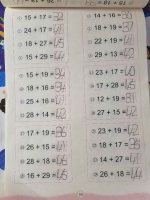 15 + 17 = 32
24 + 17 = 41
18 + 27 = 45
15 + 29 = 44
15 + 19 = 34
18 + 16 = 34
25 + 16 = 41
14 + 28 = 42
17 + 19 = 36
26 + 15 = 41
28 + 18 =
16 + 29 = 45
14 + 16 =
18 + 19 = 37
22 + 19 = 41
29 + 13 = 42
23 + 17 = 40
17 + 28 = 45
24 + 17 = 41
27 + 15 = 42
23 + 19 = 42
18 + 17 = 35
14 + 27 = 41
26 + 18 = 44